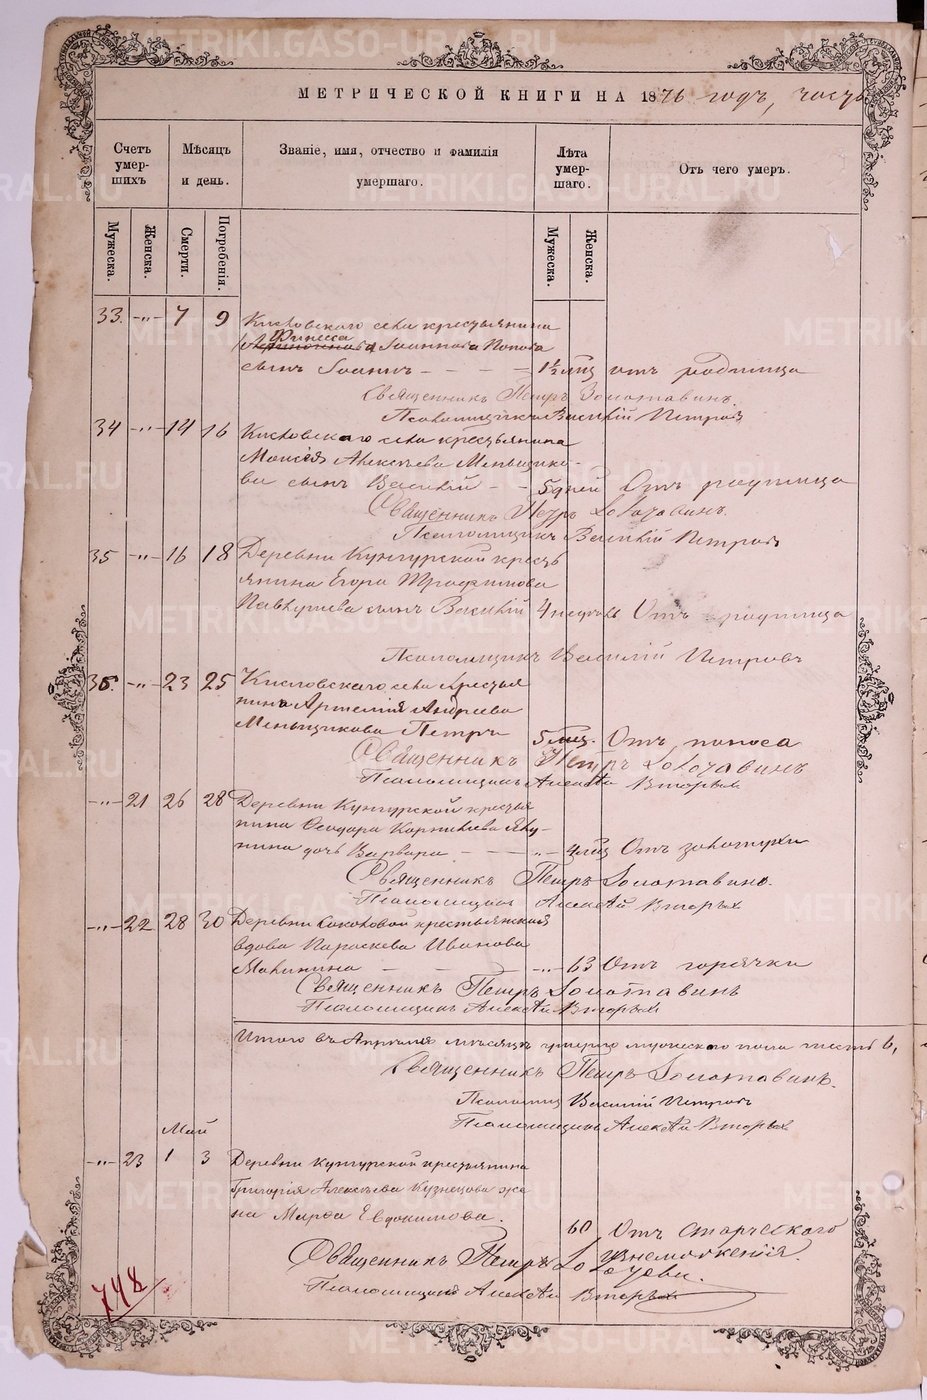 МЕТРИЧЕСКОЙ КНИГИ НА 1876 годъ, часть
Счетъ умер-шихъ
Мѣсяцъ и день.
Званіе, имя, отчество и фамилія умершаго.
Лѣта умер-шаго.
Отъ чего умеръ.
Мужеска.
Женска.
Смерти.
Погребенія.
Мужеска.
Женска.
33. -"- 7 9 Кисловскаго села крестьянина
Финесса Іоаннова Попова
сынъ Іоаннъ - - - - 1½ мѣс отъ родимца
Священникъ Петръ Золотавинъ.
Псаломщикъ Василій Петровъ
34 -"- 14 16 Кисловскаго села крестьянина
Моисея Алексѣева Меньщико-
ва сынъ Василій - - 5 дней Отъ родимца
Священникъ Петръ Золотавинъ.
Псаломщикъ Василій Петровъ
35 -"- 16 18 Деревни Кунгурской кресть
янина Егора Трофимова
сынъ Василій 4 недѣль Отъ родимца
Псаломщикъ Василій Петровъ
36. -"- 23 25 Кисловскаго села крестья
нина Артемія Андреева
Меньщикова Петръ 5 мѣс. Отъ поноса
Священникъ Петръ Золотавинъ
Псаломщикъ Алексѣй Вторыхъ
-"- 21 26 28 Деревни Кунгурской крестья
нина Феодора Корнилова Яку-
нина дочь Варвара - - - -"- 4 мѣс Отъ золотухи
Священникъ Петръ Золотавинъ.
Псаломщикъ Алексѣй Вторыхъ
-"- 22 28 30 Деревни Соколовой крестьянская
вдова Параскева Иванова
Малинина - - - -"- 63 Отъ горячки
Священникъ Петръ Золотавинъ
Псаломщикъ Алексѣй Вторыхъ
Итого въ Апрѣлѣ мѣсяцѣ умерло мужескаго пола шесть 6,
Священникъ Петръ Золотавинъ.
Псаломщ Василій Петровъ
Псаломщикъ Алексѣй Вторыхъ
Май
-"- 23 1 3 Деревни Кунгурской крестьянина
Григорія Алексѣева Кузнецова же
на Марфа Евдокимова. 60 Отъ старческаго
изнеможенія
Священникъ Петръ
Псаломщикъ Алексѣй Вторыхъ
748
METRIKI.GASO-URAL.RU